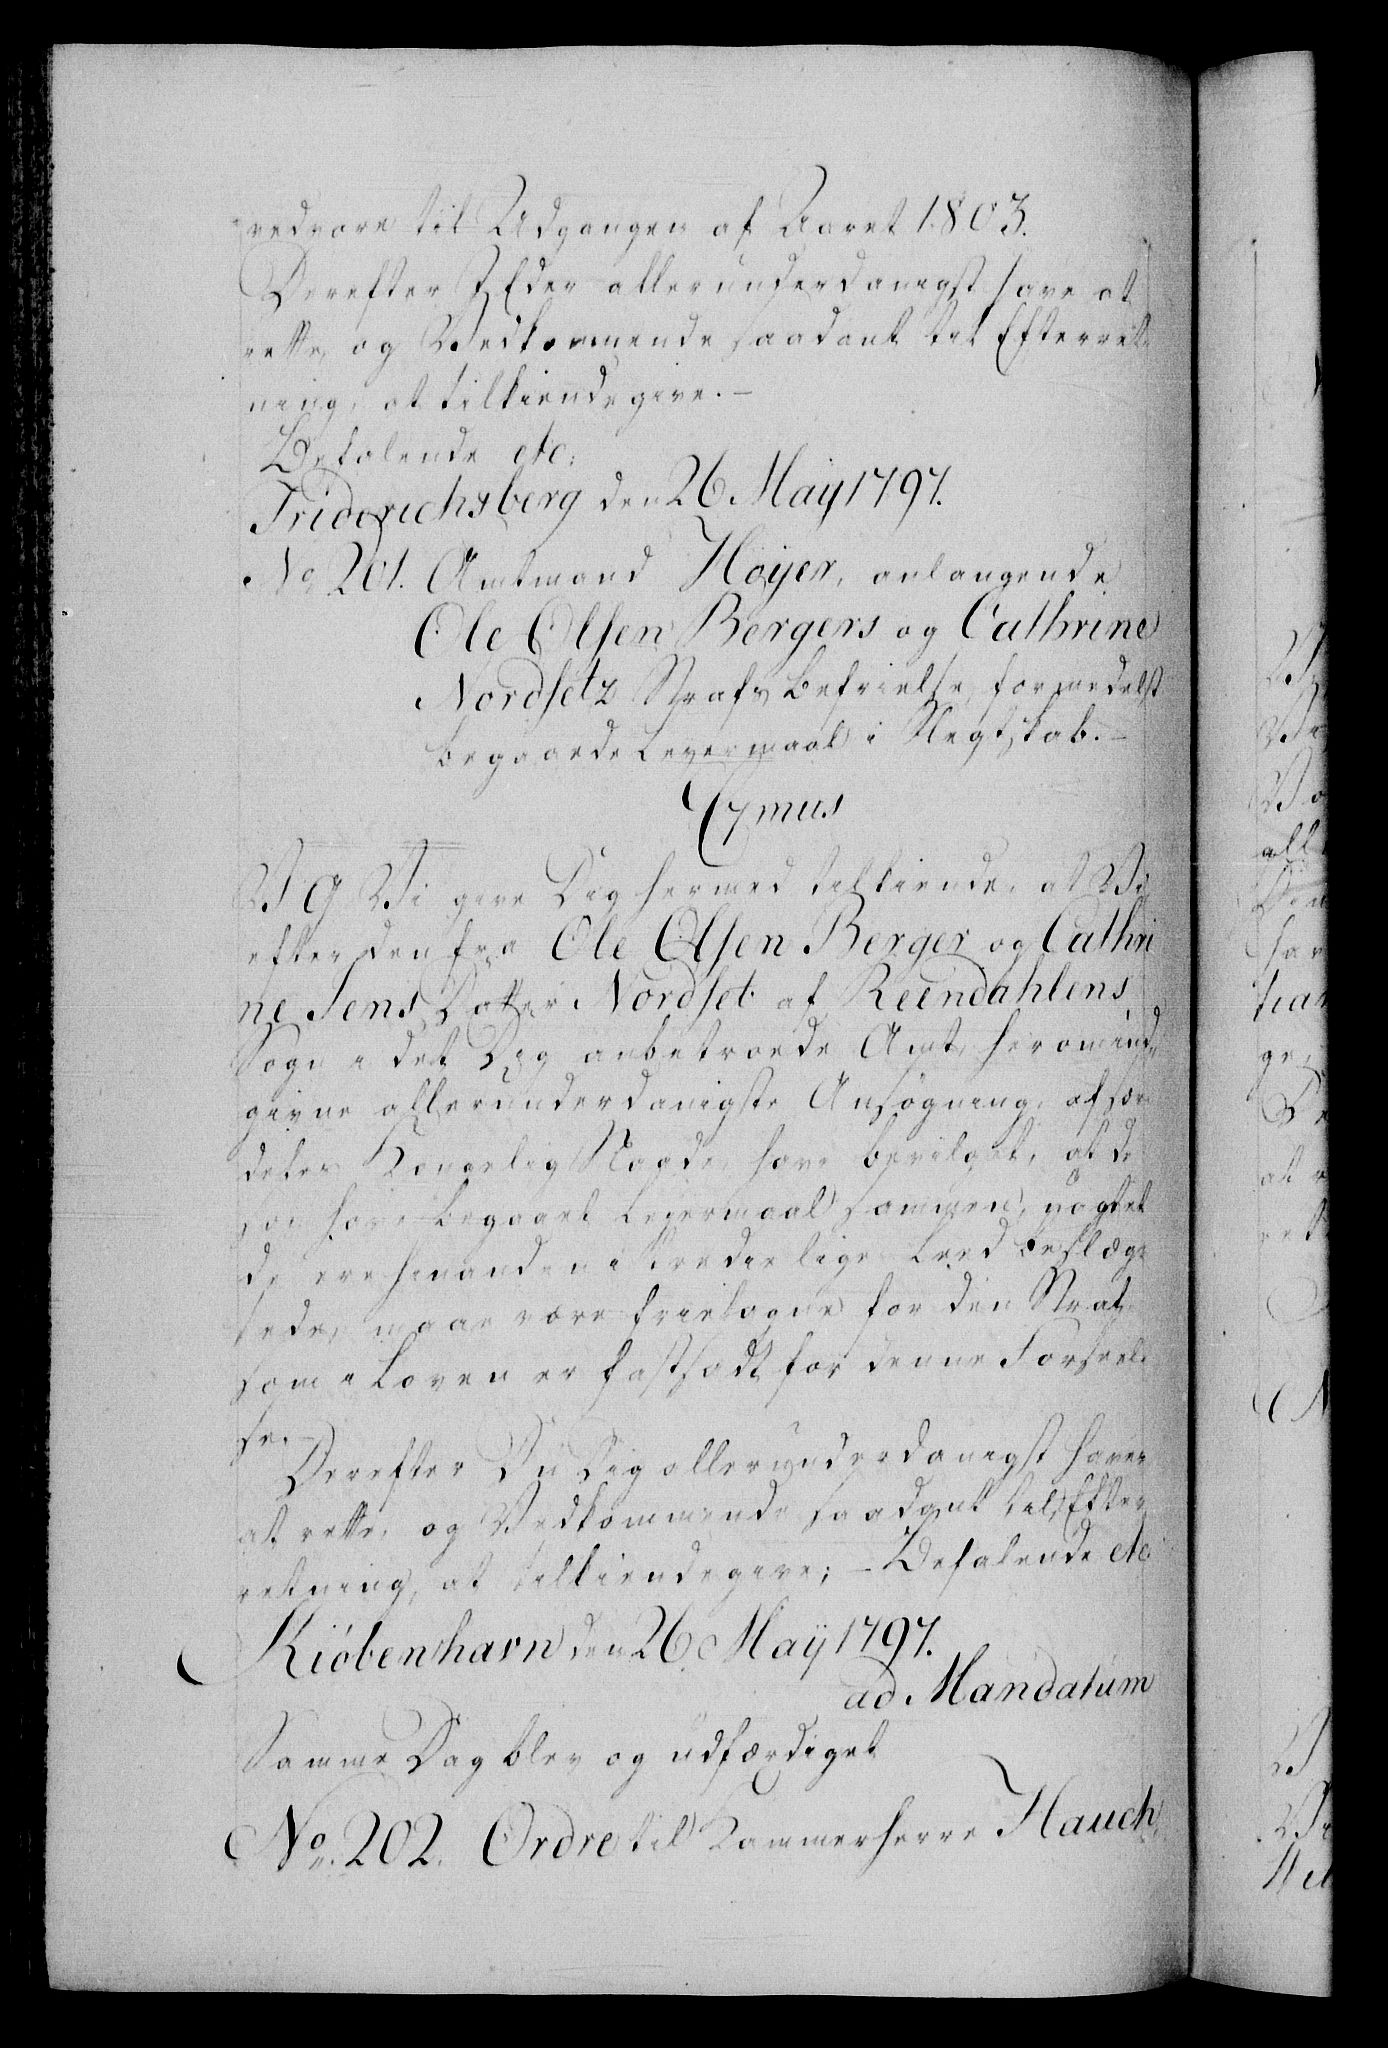 vedvare til Udgangen af Aaret 1803.
Derefter I Eder allerunderdanigst have at
rette, og Vedkommende saadant til Efterret-
ning, at tilkiendegive. –
Befalende etc:
Friderichsberg den 26 Maij 1797.
No 201. Amtmand Høyer, anlangende
Ole Olsen Bergers og Cathrine
Nordsetz Strafs Befrielse, formedelst
begaaede Leyermaal i Slegtskab. –
C7mus
V G Vi give Dig hermed tilkiende, at Vi
efter den fra Ole Olsen Berger og Cathri
ne Jens Datter Nordset af Reendahlens
Sogn i det Dig anbetroede Amt, herominde
givne allerunderdanigste Ansøgning, af sær-
deles Kongelig Naade, have bevilget, at de
som have begaaet Leyermaal sammen, uagtet
de ere hinanden i tredie lige Leed beslæg-
tede, maae være frietagne for den Straf
som i Loven er fastsadt for denne Forseel-
se. –
Derefter Du Dig allerunderdanigst haver
at rette, og Vedkommende saadant til Efter
retning, at tilkiendegive; – Befalende etc
Kiøbenhavn den 26 Maij 1797.
ad Mandatum
Samme Dag blev og udfærdiget
No. 202. Ordre til Kammerherre Hauch,